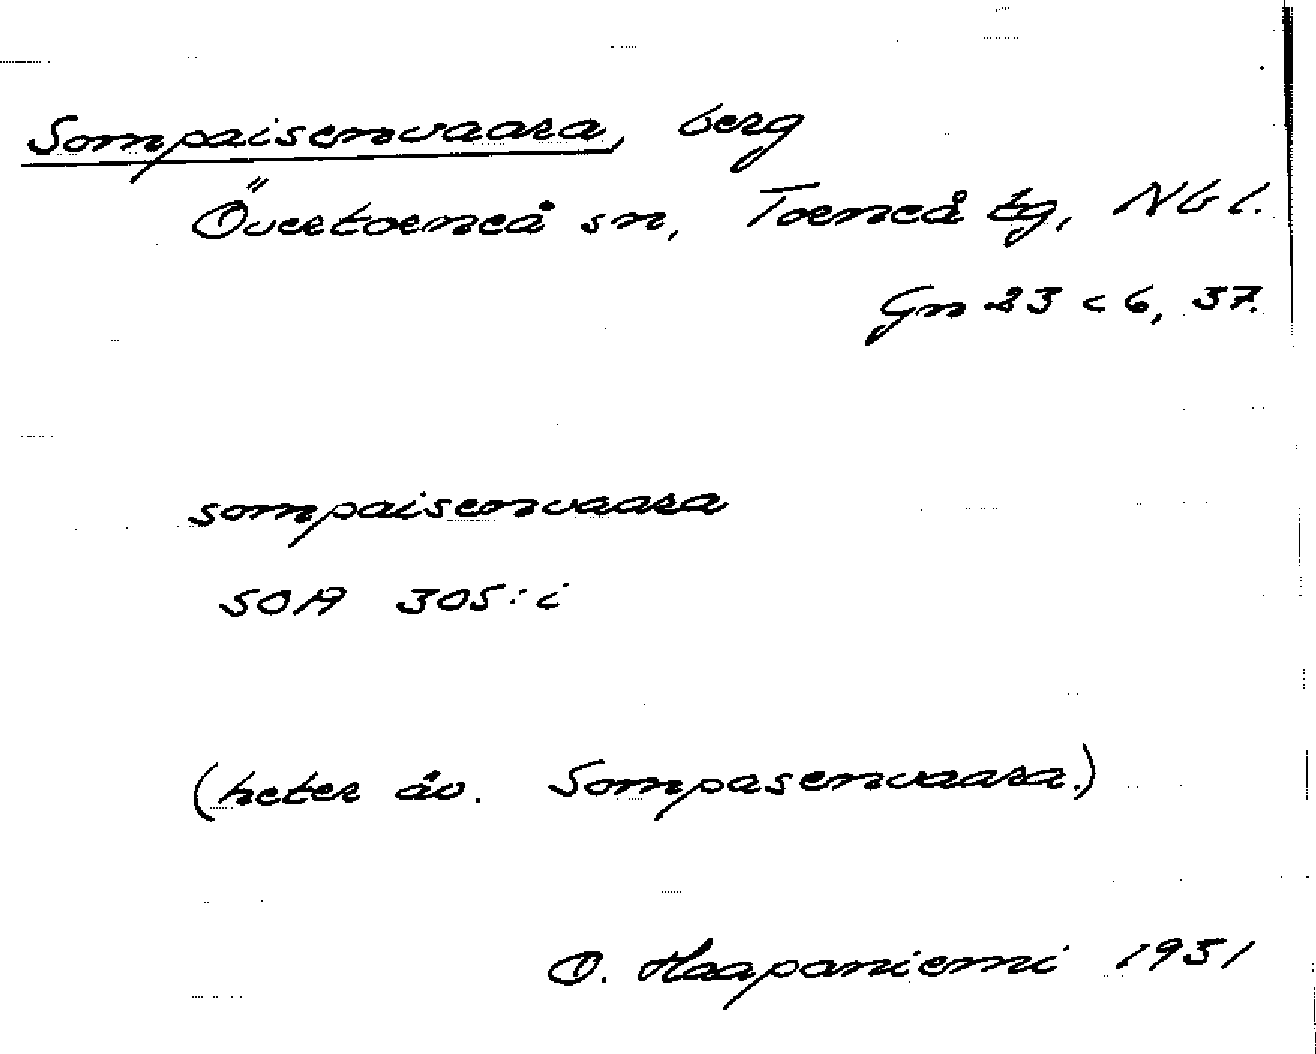 Sompaisenvaara, berg
Övertorneå sn, Torneå tg, Nbl.
Gn 23 c 6, 37.
sompaisenvaara
SOA 305:i
(heter äv. Sompasenvaara.)
O. Haapaniemi 1931